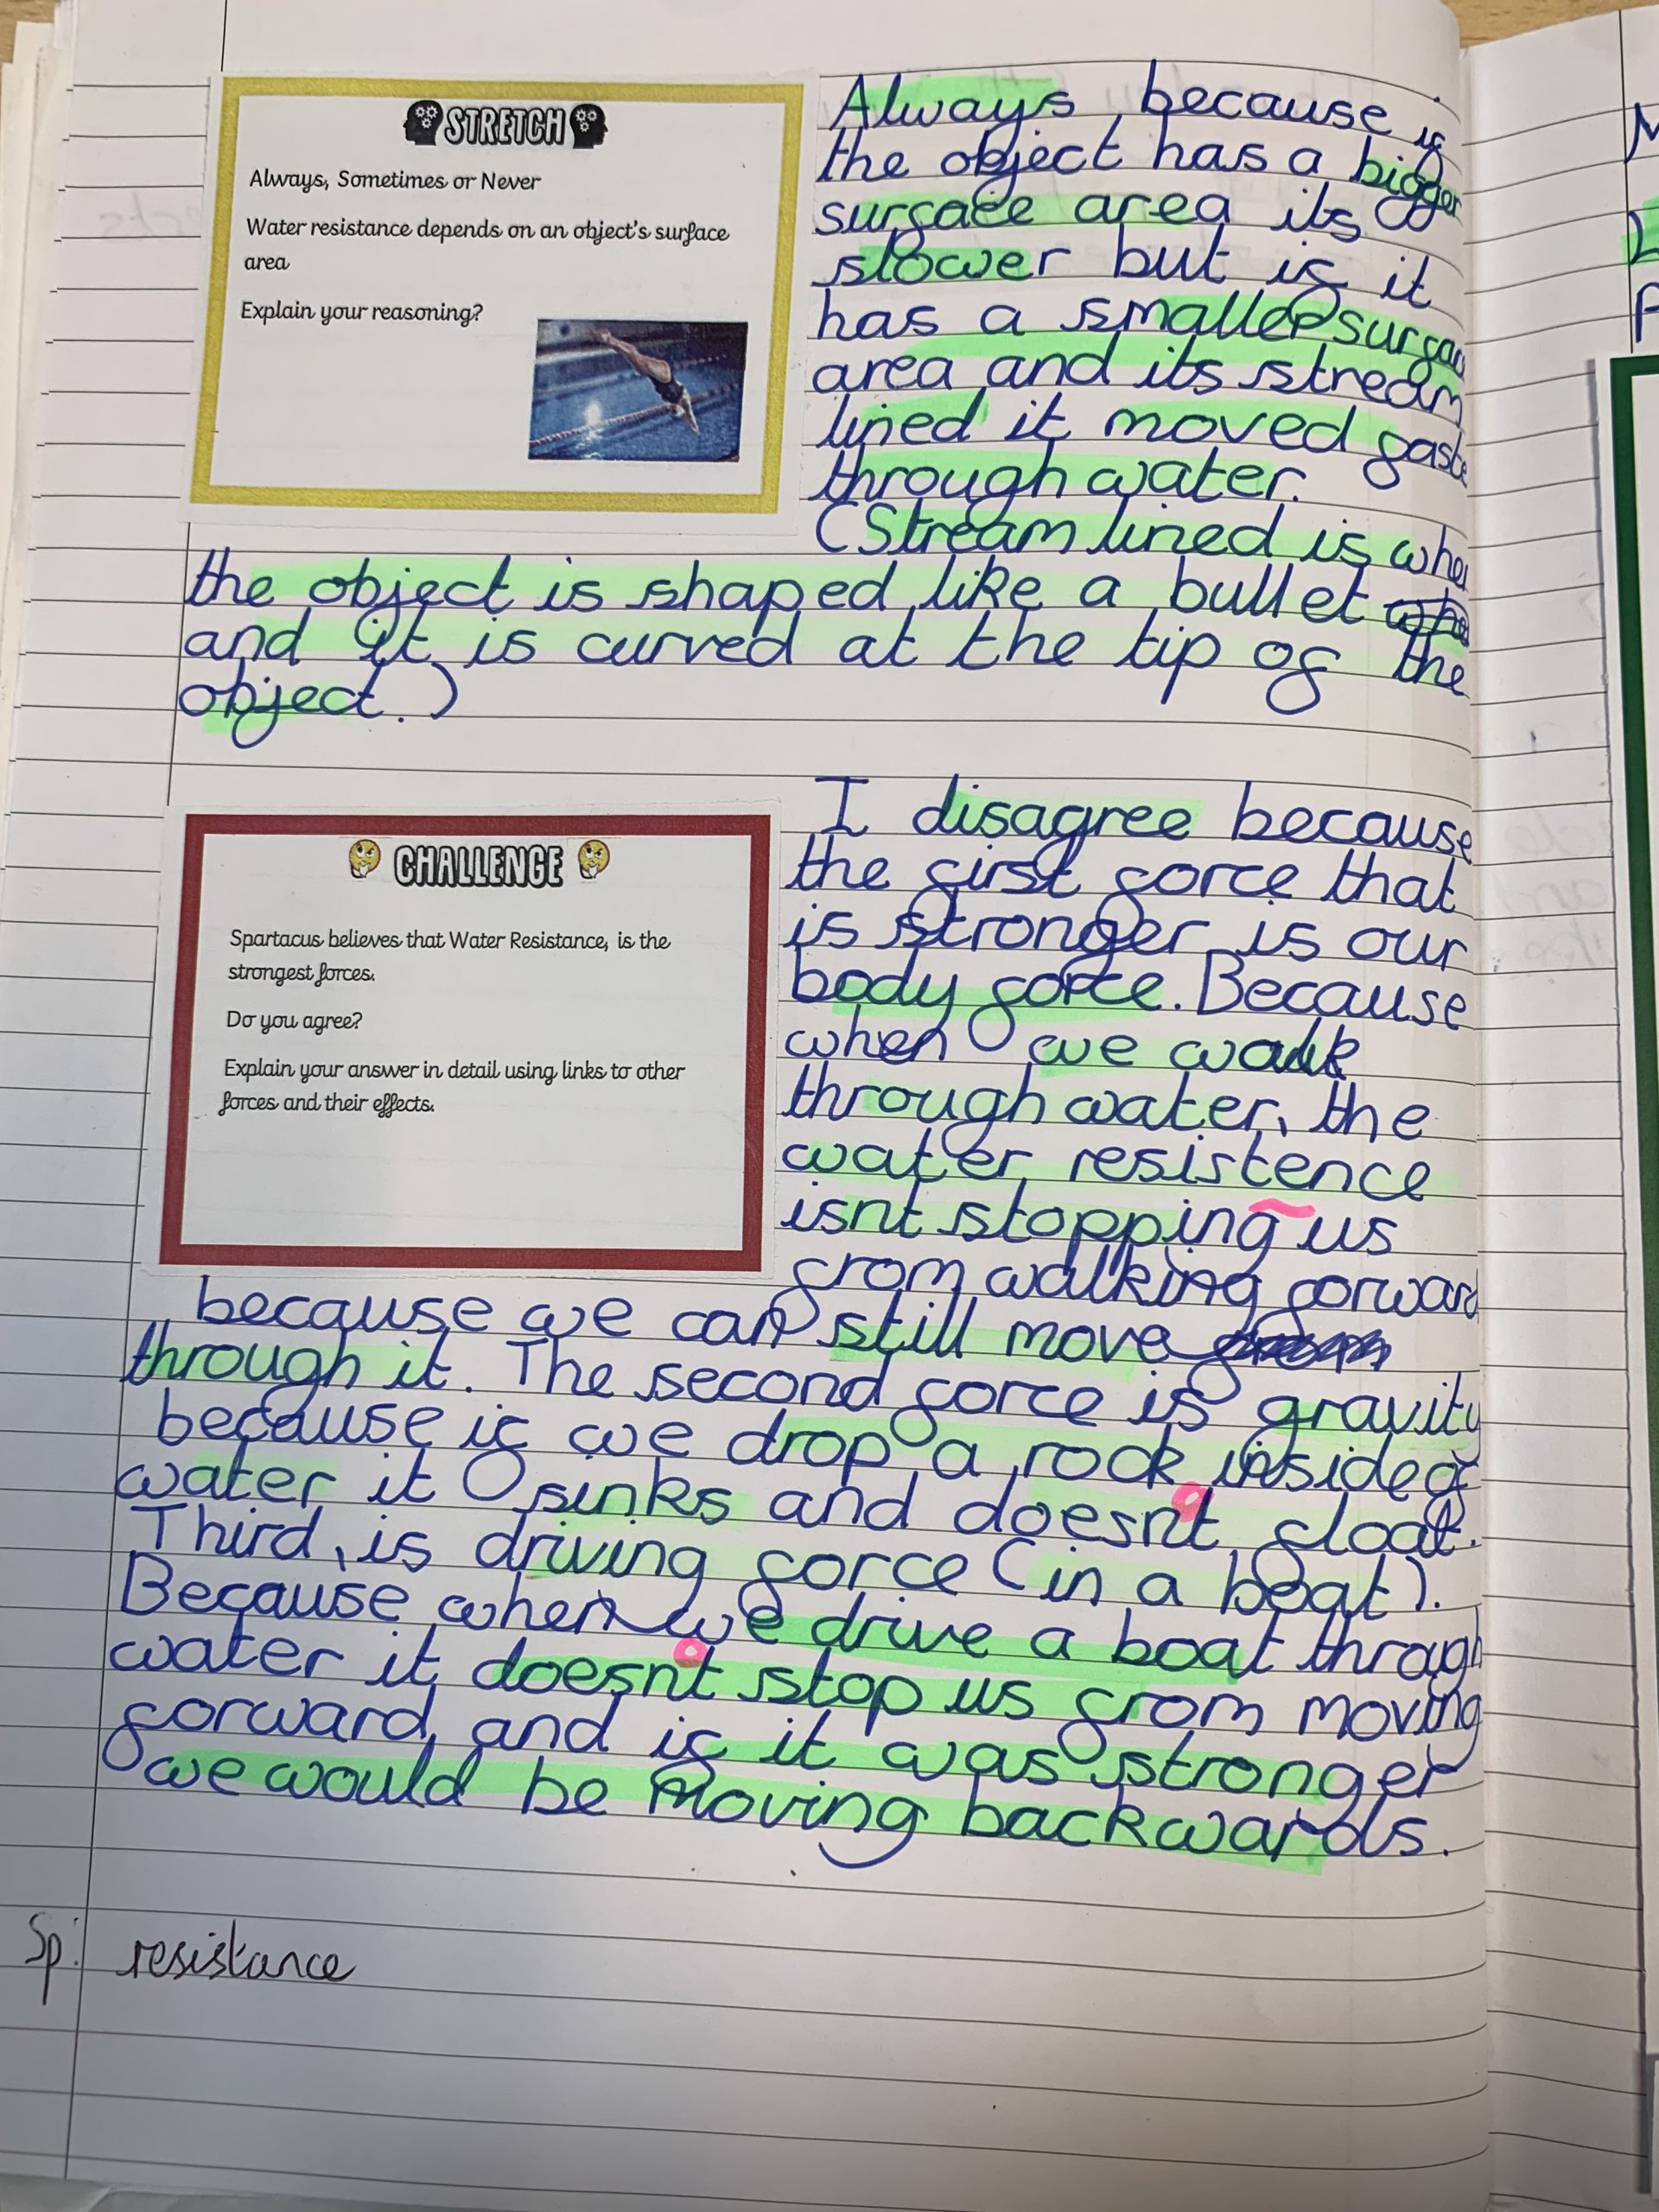 STRETCH
Always, Sometimes or Never
Water resistance depends on an object's surface
area
Explain your reasoning?
Always, because if
the object has a bigger
surface area its
slower but if it
has a smaller surfac
area and its stream
lined it moved faste
through water.
(Stream lined is when
the object is shaped like a bullet
and it is curved at the tip of the
object.)
CHALLENGE
Spartacus believes that Water Resistance, is the
strongest forces.
Do you agree?
Explain your answer in detail using links to other
forces and their effects.
I disagree because
the first force that
is stronger is our
body force. Because
when we walk
through water, the
water resistence
isnt stopping us
from walking forward
because we can still move
through it. The second force is gravity
because if we drop a rock inside of
water it sinks and doesn't float.
Third, is driving force (in a boat).
Because when we drive a boat through
water it doesn't stop us from moving
forward, and if it was stronger
we would be moving backwards.
Sp: resistance